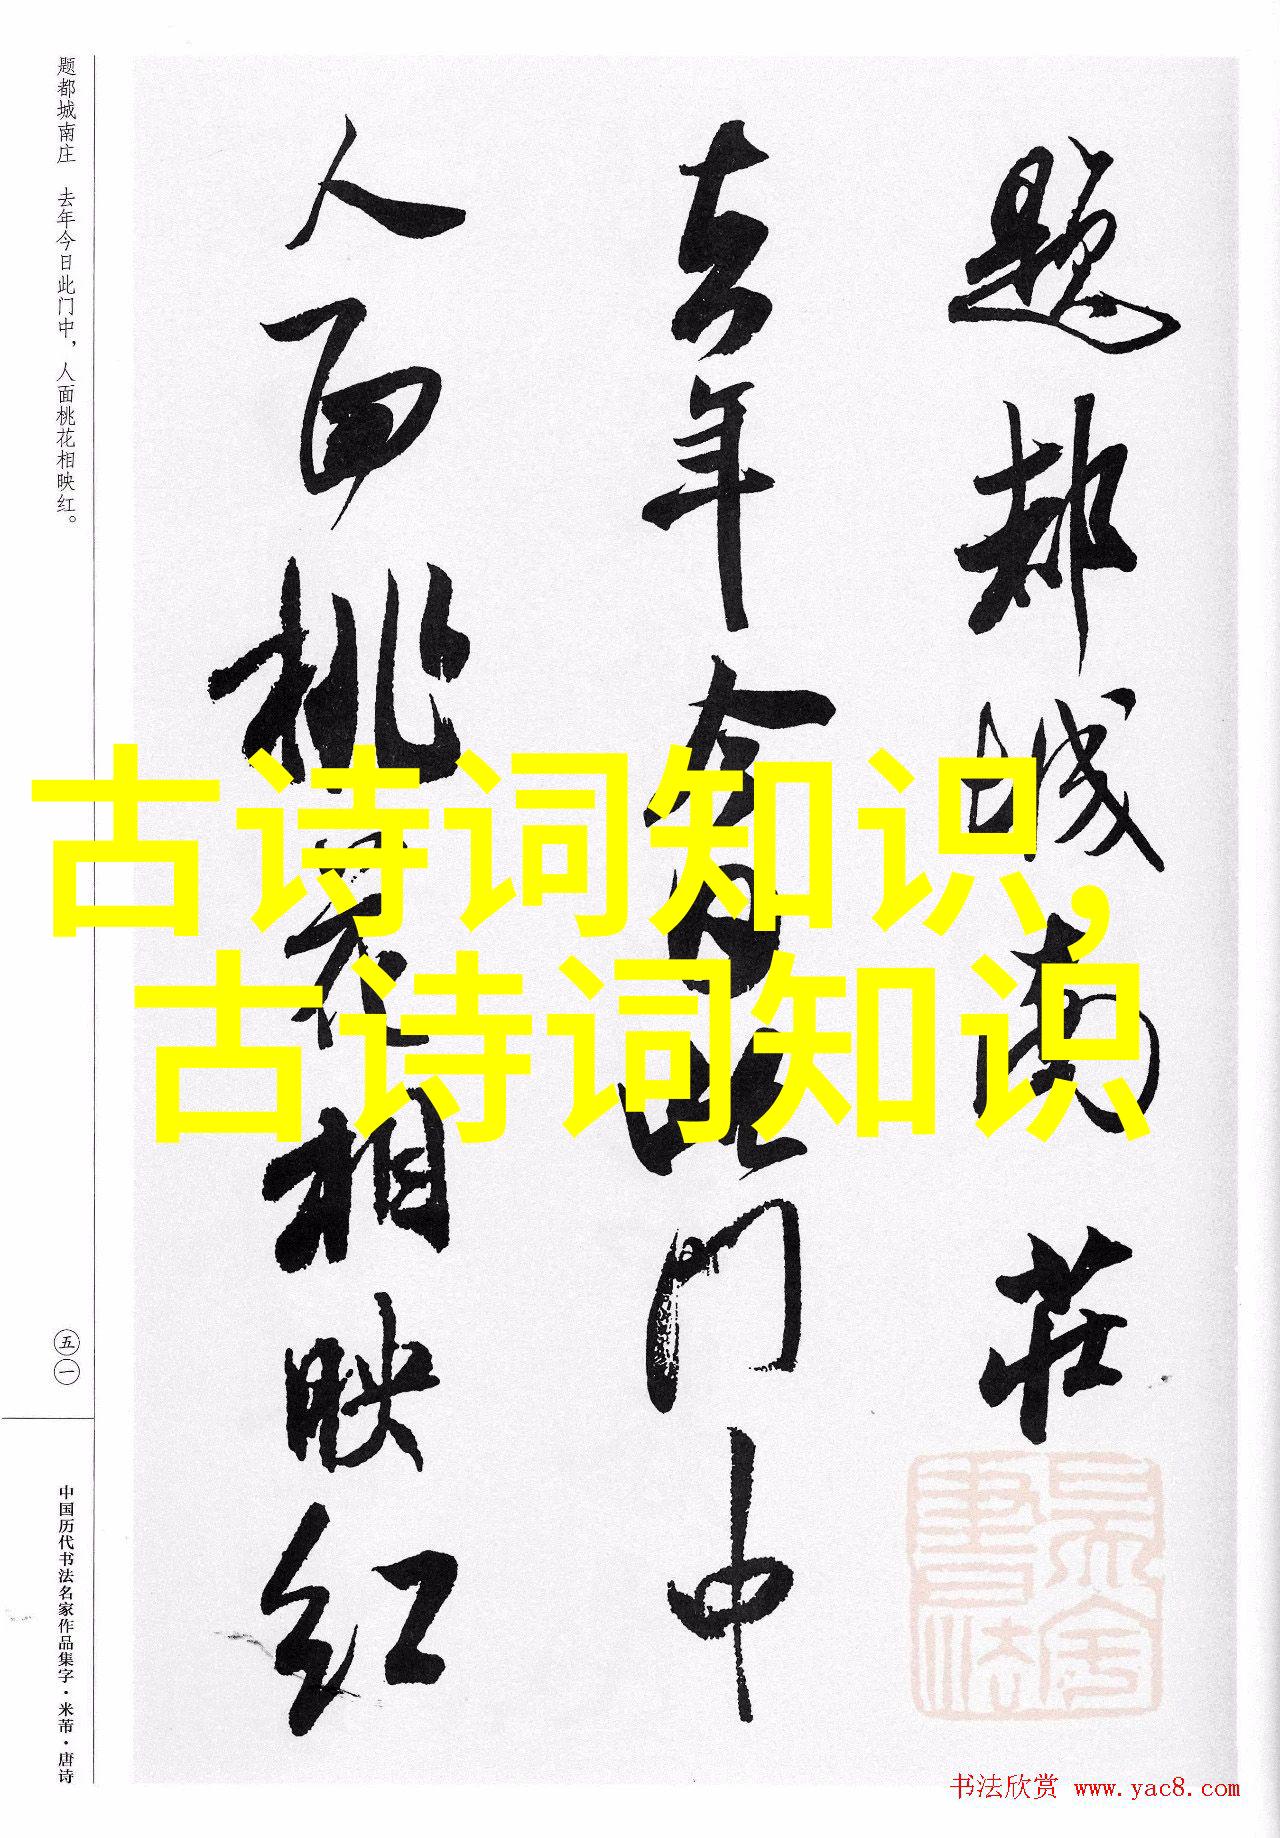 题都城南莊
去年今日此门中
人面桃花相映红
古诗词知识,
古诗词知识
题都城南庄 去年今日此门中，人面桃花相映红。
五一
中国历代书法名家作品集字·米芾·唐诗
吴舍書法
书法欣赏 www.yac8.com